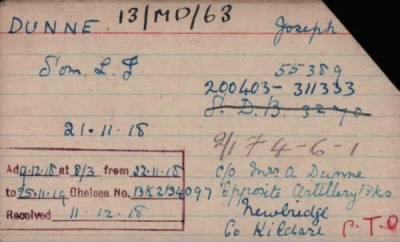 13/MD/63
DUNNE. Joseph
Som. L. I 55389
200403 - 311333
S. D. B. 3270
21.11.18
2/1 7 4-6-1
Adg. 12.18 at 8/3 from 22.11.18
to 25.11.19 Chelsea No. 13K2134097
Received 11.12.18
c/o Mrs A Dunne
Opposite Artillery Bks
Newbridge
Co Kildare P.T.O